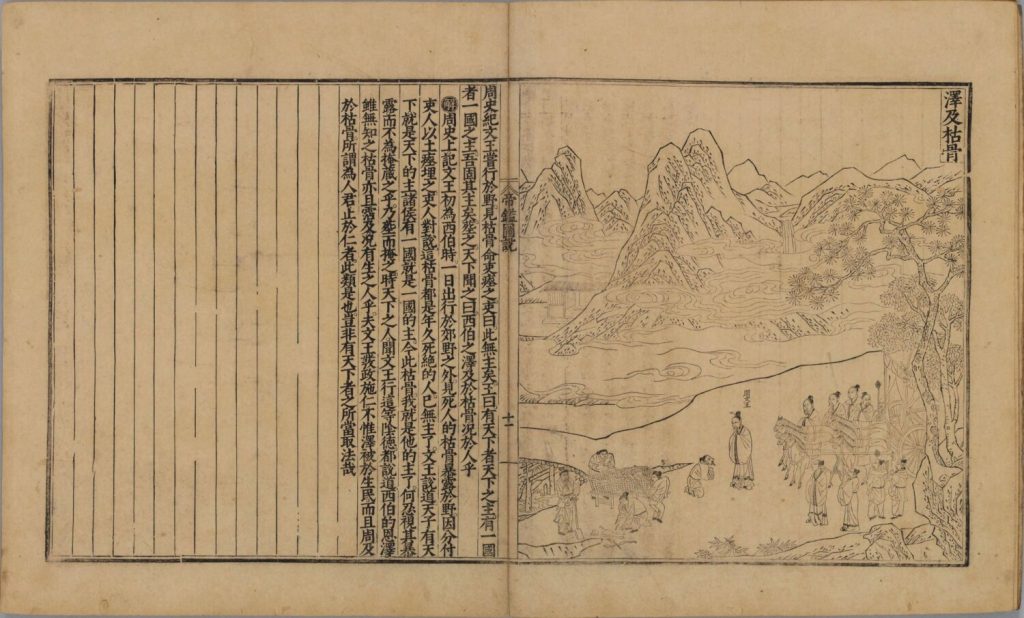 澤及枯骨
周文王
帝鑑圖說
十一
周史紀文王嘗行於野見枯骨命吏瘞之吏曰此無主矣王曰有天下者天下之主有一國
者一國之主吾固其主矣葬之天下聞之曰西伯之澤及於枯骨況於人乎
解周史上記文王初為西伯時一日出行於郊野之外見死人的枯骨暴露於野因分付
吏人以土瘞埋之吏人對說這枯骨都是年久死絕的人已無主了文王說道天子有天
下就是天下的主諸侯有一國就是一國的主今此枯骨我就是他的主了何忍視其暴
露而不為掩藏之乎乃葬而掩之時天下之人聞文王行這等陰德都說道西伯的恩澤
雖無知之枯骨亦且霑及況有生之人乎夫文王發政施仁不惟澤被於生民而且周及
於枯骨所謂為人君止於仁者此類是也豈非有天下者之所當取法哉